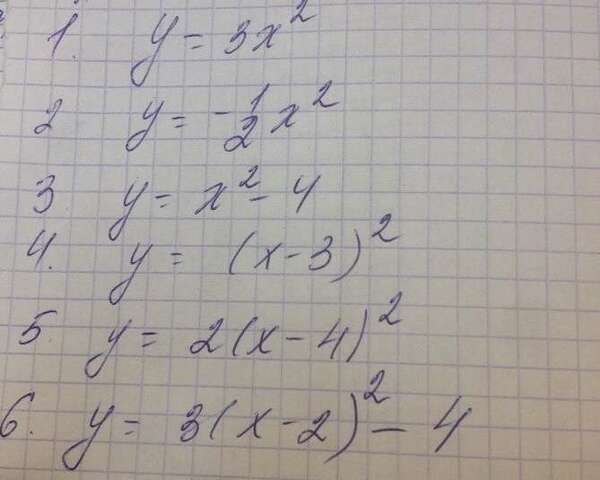 1. y = 3x²
2 y = -1/2 x²
3. y = x² - 4
4. y = (x-3)²
5. y = 2(x-4)²
6. y = 3(x-2)² - 4